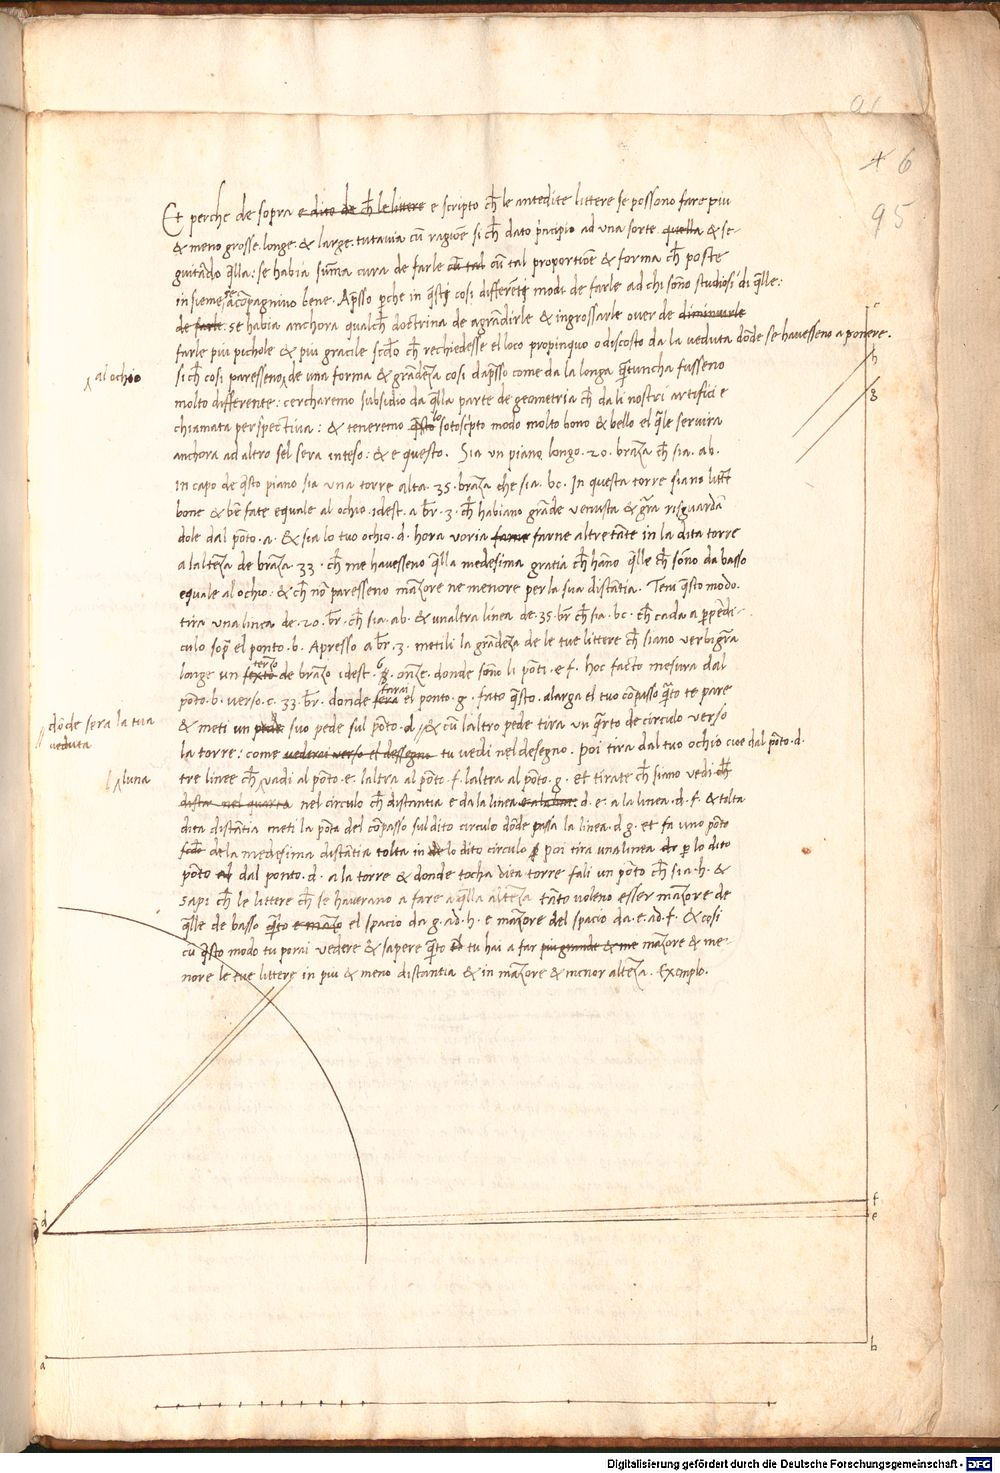 6
95
Et perche de sopra e dito de ch̄ le littere e scripto ch̄ le antedite littere se possono fare piu
& meno grosse. longe. & large. tutauia cū ragiōe si ch̄ dato prīcipio ad una sorte. quella & se-
guitādo q̄lla: se habia sūma cura de farle cū tal cū tal proportiōe & forma ch̄ poste
insieme se acōpagnino bene. Ap̄sso p̄che in q̄sti cosi differēti modi de farle ad chi sōno studiosi di q̄lle:
de farle: se habia anchora qualch̄ doctrina de agrādirle & ingrossarle over de diminuirle
farle piu pichole & piu gracile scdo ch̄ rechiedesse el loco propinquo o discosto da la veduta dōde se havesseno a ponere.
al ochio
si ch̄ cosi paresseno de una forma & grādeza cosi dap̄sso come da la longa q̄tuncha fusseno
molto differente: cercharemo subsidio da q̄lla parte de geometria ch̄ da li nostri artifici e
chiamata perspectiva: & teneremo q̄sto lo sotoscp̄to modo molto bono & bello el q̄le servira
anchora ad altro sel sera inteso: & e questo. Sia un piano longo .20. braza ch̄ sia. ab.
In capo de q̄sto piano sia una torre alta. 35. braza che sia. bc. In questa torre siano littē
bone & bē fate equale al ochio. idest. a br̄. 3. ch̄ habiano grāde venusta & gr̄a risguardā
dole dal pōto .a. & sia lo tuo ochio .d. hora voria farne farne altretāte in la dita torre
a lalteza de braza 33. ch̄ me havesseno q̄lla medesima gratia ch̄ hāno q̄lle ch̄ sōno da basso
equale al ochio: & ch̄ nō paresseno mazore ne menore per la sua distātia. Tem q̄sto modo.
tira una linea de .20. br̄. ch̄ sia. ab. & unaltra linea de .35. br̄ ch̄ sia. bc. ch̄ cada a ppēdi-
culo sop̄ el ponto .b. Apresso a br̄. 3. metili la grādeza de le tue littere ch̄ siano verbigr̄a
longe un sexto terzo de brazo idest. 8. 6 onze. donde sōno li pōti. e f. hoc facto mesura dal
pōto. b. verso. c. 33. br̄. donde sera farai el ponto. g. fato q̄sto. alarga el tuo cōpasso q̄to te pare
dōde sera la tua
veduta
& meti un pede suo pede sul pōto. d // & cū laltro pede tira un q̄rto de circulo verso
la torre: come vedrai verso el dessegno tu vedi nel desegno. Poi tira dal tuo ochio cioe dal pōto. d.
luna
tre linee ch̄ vadi al pōto. e. laltra al pōto. f. laltra al pōto. g. et tirate ch̄ siano vedi ch̄
dista nel quarta nel circulo ch̄ distantia e da la linea e a la linea. d. e. a la linea. d. f. & tolta
dita distātia meti la pōta del cōpasso sul dito circulo dōde passa la linea. d g. et fa uno pōto
de la medesima distātia tolta in de lo dito circulo poi tira una linea p̄ lo dito
pōto dal ponto. d. a la torre & donde tocha dita torre fali un pōto ch̄ sia. h. &
sapi ch̄ le littere ch̄ se haverano a fare a q̄lla alteza tāto voleno esser mazore de
q̄lle de basso q̄to e mazo el spacio da g. ad. h. e mazore del spacio da. e. ad. f. & cosi
cū q̄sto modo tu porai vedere & sapere q̄to tu hai a far piu grande & me mazore & me-
nore le tue littere in piu & meno distantia & in mazore & menor alteza. Exemplo.
c
h
g
d
f
e
b
a
Digitalisierung gefördert durch die Deutsche Forschungsgemeinschaft - DFG